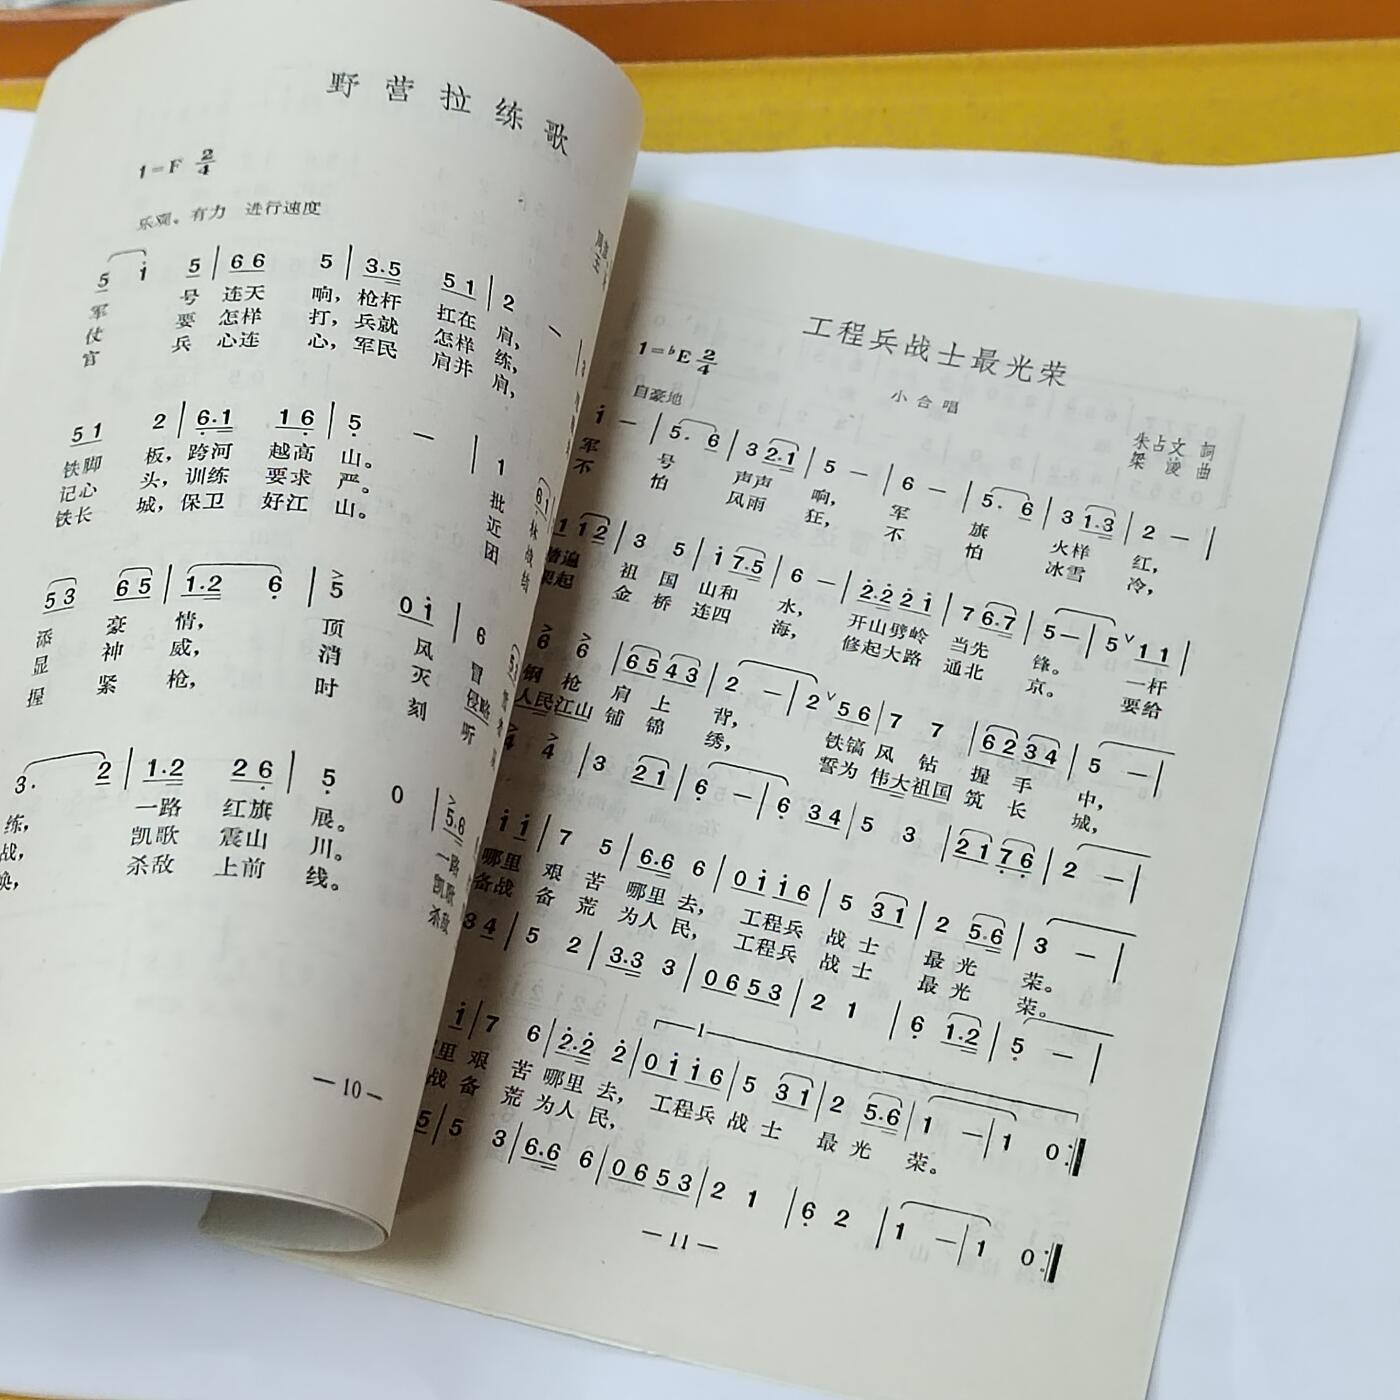 野营拉练歌
1=F 2/4
乐观。有力 进行速度
5 i 5 | 6 6 5 | 3.5 5 1 | 2 —
军 号 连天 响，枪杆 扛在 肩，
仗 要 怎样 打，兵就 怎样 练，
官 兵 心连 心，军民 肩并 肩，
5 1 2 | 6.1 1 6 | 5 — | 1
铁脚 板，跨河 越高 山。 批
记心 头，训练 要求 严。 近
铁长 城，保卫 好江 山。 团
5 3 6 5 | 1.2 6 | 5 0 i | 6
添 豪 情， 顶 风 冒
显 神 威， 消 灭 侵略
握 紧 枪， 时 刻 听
3. 2 | 1.2 2 6 | 5 0 | 5.6
练， 一路 红旗 展。 一路
战， 凯歌 震山 川。 凯歌
唤， 杀敌 上前 线。 杀敌
—10—
工程兵战士最光荣
1=♭E 2/4
小合唱
自豪地
朱占文 词
梁 凌 曲
i — | 5. 6 | 3 2.1 | 5 — | 6 — | 5. 6 | 3 1.3 | 2 — |
军 号 声声 响， 军 旗 火样 红，
不 怕 风雨 狂， 不 怕 冰雪 冷，
1 1 2 | 3 5 | i 7.5 | 6 — | 2.2 2 i | 7 6.7 | 5 — | 5 ∨ 1 1 |
遍 祖 国 山和 水， 开山劈岭 当先 锋。 一杆
起 金 桥 连四 海， 修起大路 通北 京。 要给
6 6 | 6 5 4 3 | 2 — | 2 ∨ 5 6 | 7 7 | 6 2 3 4 | 5 — |
钢 枪 肩 上 背， 铁镐 风 钻 握 手 中，
人民江山 铺 锦 绣， 誓为 伟大祖国 筑 长 城，
4 4 | 3 2 1 | 6 — | 6 3 4 | 5 3 | 2 1 7 6 | 2 — |
i i | 7 5 | 6.6 6 | 0 i i 6 | 5 3 1 | 2 5.6 | 3 — |
哪里 艰 苦 哪里 去， 工程兵 战 士 最 光 荣。
备战 备 荒 为人 民， 工程兵 战 士 最 光 荣。
3 4 | 5 2 | 3.3 3 | 0 6 5 3 | 2 1 | 6 1.2 | 5 — |
i | 7 6 | 2.2 2 | 0 i i 6 | 5 3 1 | 2 5.6 | 1 — | 1 0 :‖
里 艰 苦 哪里 去， 工程兵 战 士 最 光 荣。
战 备 荒 为人 民，
5 | 5 3 | 6.6 6 | 0 6 5 3 | 2 1 | 6 2 | 1 — | 1 0 :‖
—11—